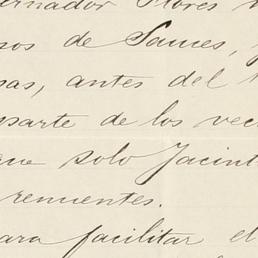 ernador Flores
sos de Sauces,
sas, antes del
parte de los vec
que solo Jacint
renuentes.
para facilitar el